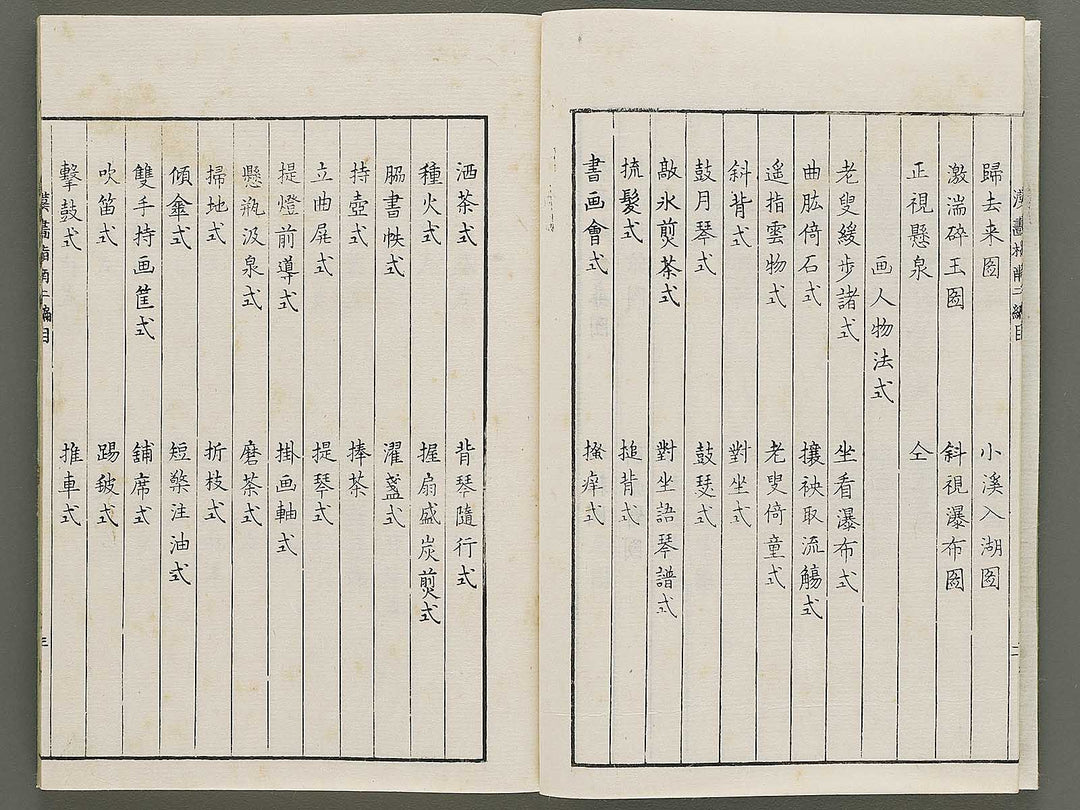 漢畫指南二編目
歸去来圖　小溪入湖圖
激湍碎玉圖　斜視瀑布圖
正視懸泉　仝
画人物法式
老叟緩步諸式　坐看瀑布式
曲肱倚石式　攘袂取流觴式
遥指雲物式　老叟倚童式
斜背式　對坐式
鼓月琴式　鼓琴式
敲氷煎茶式　對坐語琴譜式
梳髮式　搥背式
書画會式　搔痒式
二
洒茶式　背琴隨行式
種火式　握扇盛炭煎式
脇書帙式　濯盞式
持壺式　捧茶
立曲屍式　提琴式
提燈前導式　掛画軸式
懸瓶汲泉式　磨茶式
掃地式　折枝式
傾傘式　短檠注油式
雙手持画筐式　舖席式
吹笛式　踢毬式
擊鼓式　推車式
漢畫指南二編目
三